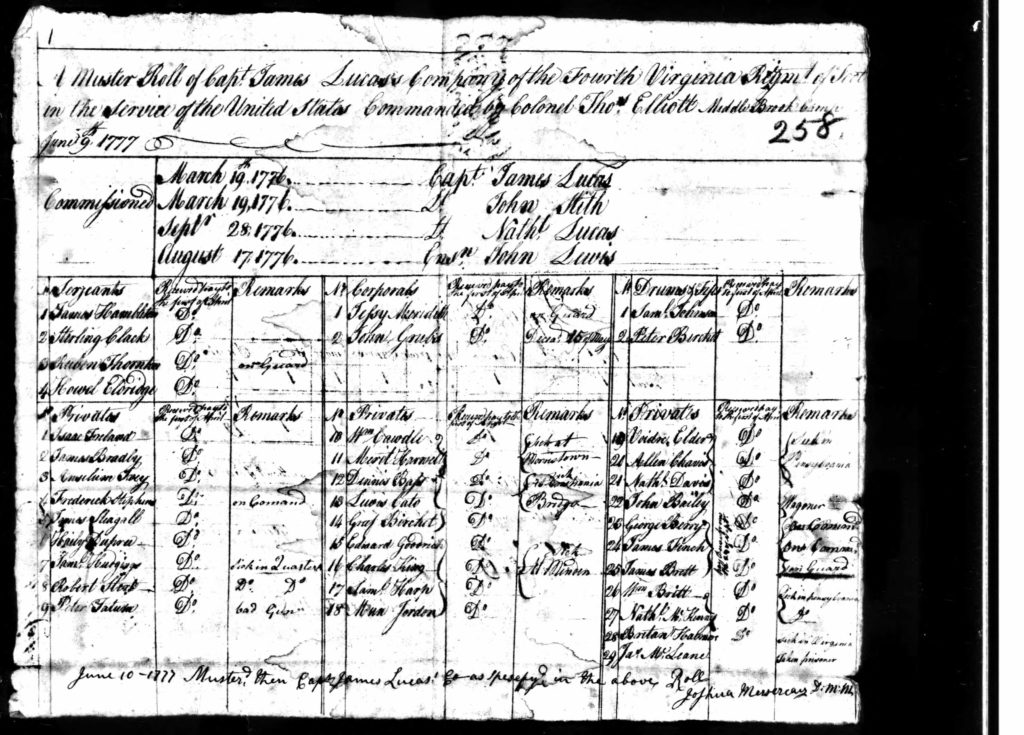 1
A Muster Roll of Capt. James Lucas's Company of the Fourth Virginia Regmt. of Foot
in the Service of the United States Commanded by Colonel Thos. Elliott Middle Brook
June 9th. 1777
258.
Commissioned
March 19th. 1776. Capt. James Lucas
March 19, 1776. Lt. John Stith
Septr. 28, 1776. Lt. Nathl. Lucas
August 17, 1776. Ensn. John Lewis
No. Serjeants Received pay to the first of Remarks
1 James Hambleton Do.
2 Sterling Clack Do.
3 Reubon Thornton Do. on Guard
4 Howel Eldridge Do.
No. Corporals Received pay to the first of Remarks
1 Jessy Meredith Do. on Guard
2 John Grubs Do. 15 of May
No. Drums & Fifes Received pay to the first of Remarks
1 Saml. Johnson Do.
2 Peter Birchet Do.
No. Privates Received pay to the first of Remarks
1 Isaac Ireland Do.
2 James Bradly Do.
3 Anselim Do.
4 Frederick Stephens Do. on Comand
5 James Seagall Do.
6 Dupree Do.
7 Saml. Do. Sick in Quarters
8 Robert Do. Do. Do.
9 Peter Do. bad
No. Privates Remarks
10 Wm. Do. Sick at
11 Merit Harwell Do. Morristown
12 Dinnis Do. Sick
13 Lucas Cato Do. Bridge
14 Gray Birchet Do.
15 Edward Goodrich Do.
16 Charles King Do. Sick
17 Saml. Harp Do. At
18 Jordon Do.
No. Privates Received pay to the first of Remarks
19 Elder Do. Sick in
21 Allen Chaves Do. Pensylvania
21 Nathl. Davis Do.
22 John Bailey Do. Wagoner
23 George Berry Do. On Comand
24 James Finch Do. On Command
25 James Brett Do. On Guard
26 Wm. Britt Do. Sick in pensylvania
27 Nathl. McKenny Do. Do.
28 Britan Do. Sick in Virginia
29 Jas. McLeane Taken prisoner
June 10-1777 Musterd. then Capt. James Lucas' Co as in the above Roll
Joshua D: M: M.